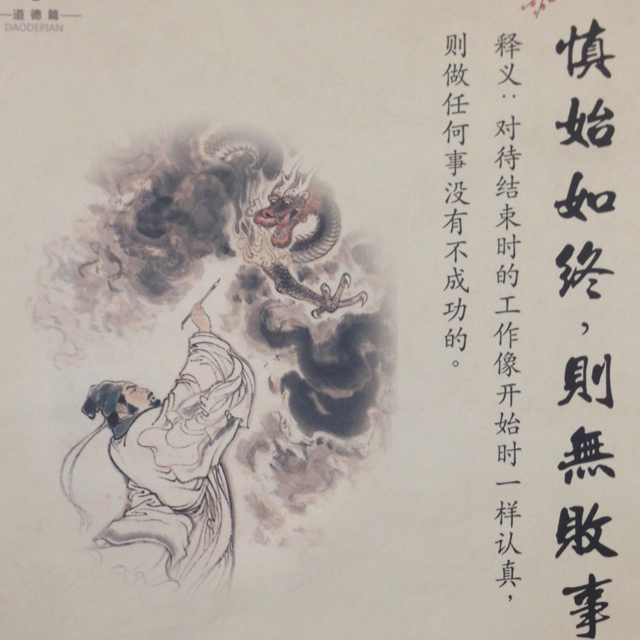 道德篇
DAODEPIAN
慎始如终,則無敗事
释义:对待结束时的工作像开始时一样认真,
则做任何事没有不成功的。